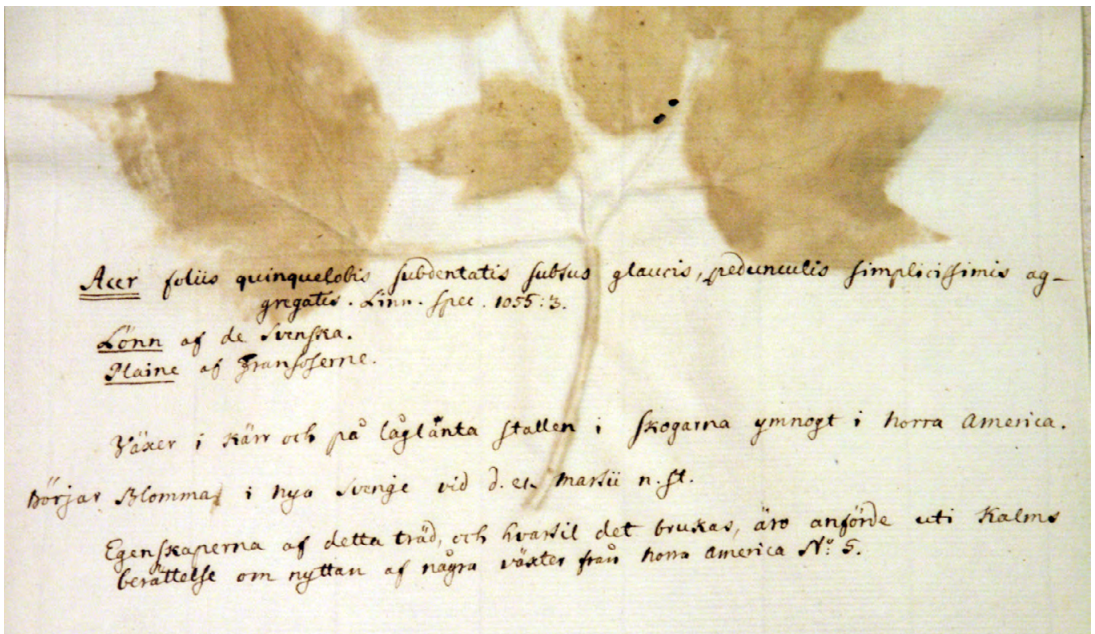 Acer foliis quinquelobis subdentatis subtus glaucis, pedunculis simplicissimis ag-
gregatis. Linn. spec. 1055:3.
Lönn af de Svenska.
Plaine af Fransoserne.
Växer i kärr och på låglänta ställen i skogarna ymnogt i norra America.
börjar Blomma i nya Sverige vid d. 21 Martii n. st.
Egenskaperna af detta träd, och hvartil det brukas, äro anförde uti Kalms
berättelse om nyttan af några växter från norra America No. 5.